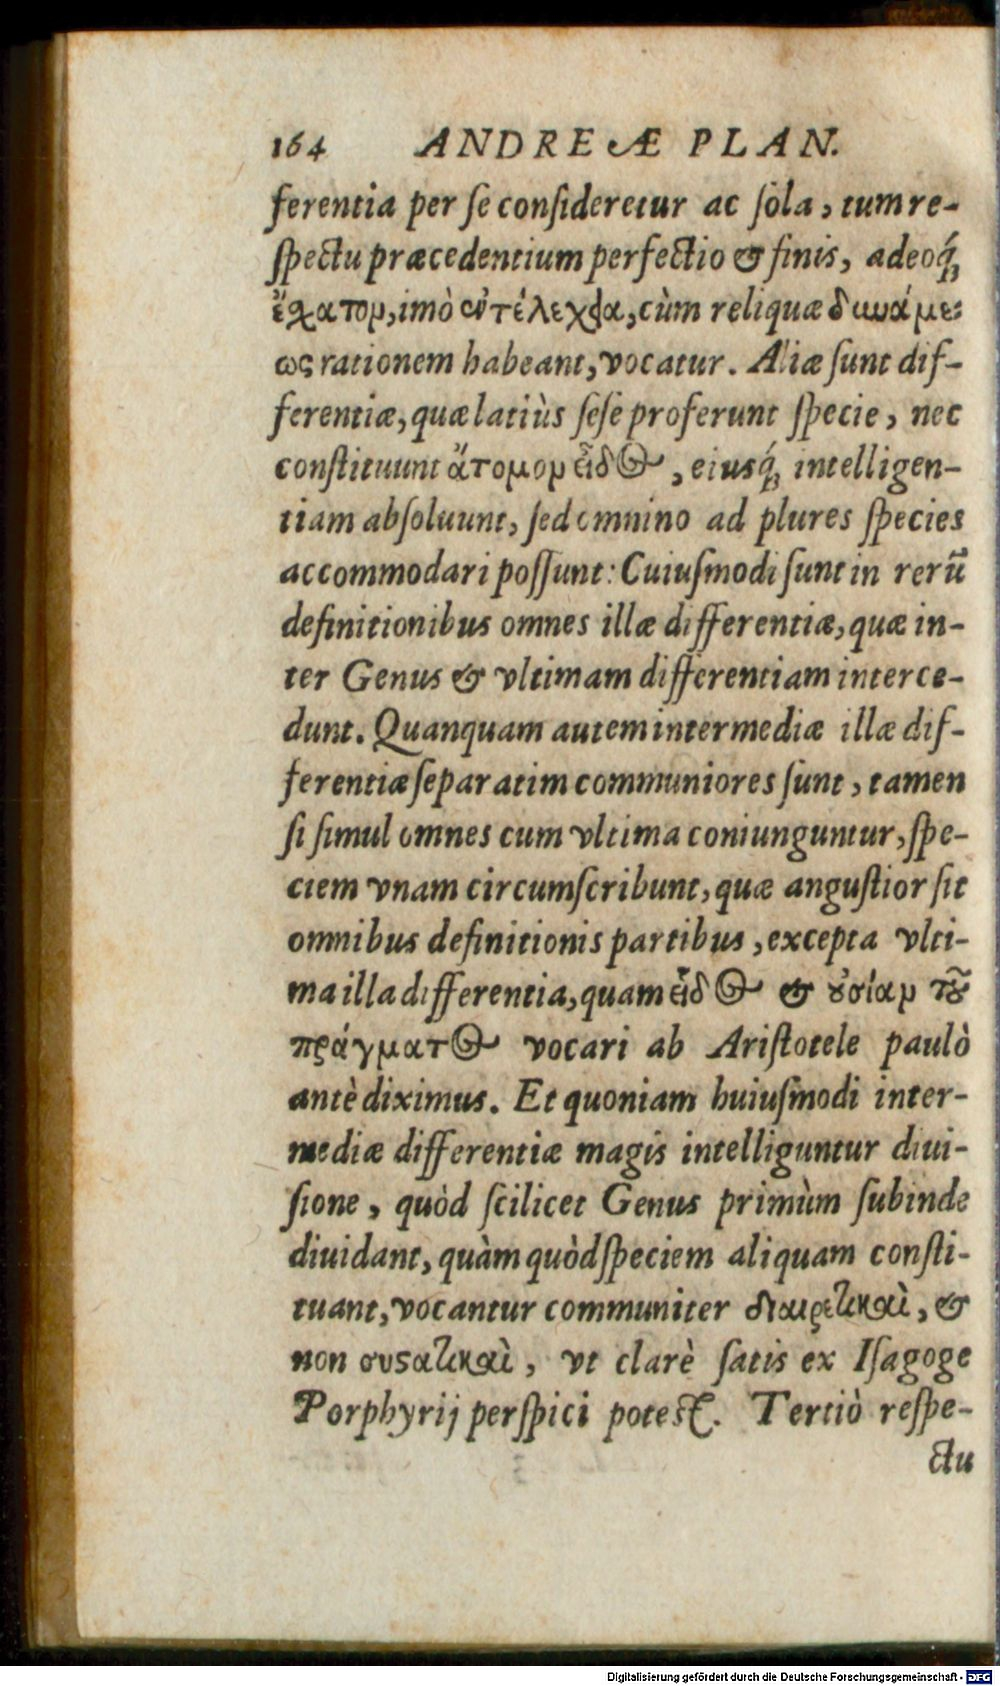 164 ANDREÆ PLAN.
ferentia per se consideretur ac sola, tum re-
spectu præcedentium perfectio & finis, adeoq́;
ἔσχατον, imò ἐντελέχεια, cùm reliquæ δυνάμε-
ως rationem habeant, vocatur. Aliæ sunt dif-
ferentiæ, quæ latiùs sese proferunt specie, nec
constituunt ἄτομον εἶδος, eiusq́; intelligen-
tiam absoluunt, sed omnino ad plures species
accommodari possunt: Cuiusmodi sunt in rerū
definitionibus omnes illæ differentiæ, quæ in-
ter Genus & vltimam differentiam interce-
dunt. Quanquam autem intermediæ illæ dif-
ferentiæ separatim communiores sunt, tamen
si simul omnes cum vltima coniunguntur, spe-
ciem vnam circumscribunt, quæ angustior sit
omnibus definitionis partibus, excepta vlti-
ma illa differentia, quam εἶδος & οὐσίαν τοῦ
πράγματος vocari ab Aristotele paulò
antè diximus. Et quoniam huiusmodi inter-
mediæ differentiæ magis intelliguntur diui-
sione, quòd scilicet Genus primùm subinde
diuidant, quàm quòd speciem aliquam consti-
tuant, vocantur communiter διαιρετικαὶ, &
non συστατικαὶ, vt clarè satis ex Isagoge
Porphyrij perspici potest. Tertiò respe-
ctu
Digitalisierung gefördert durch die Deutsche Forschungsgemeinschaft - DFG